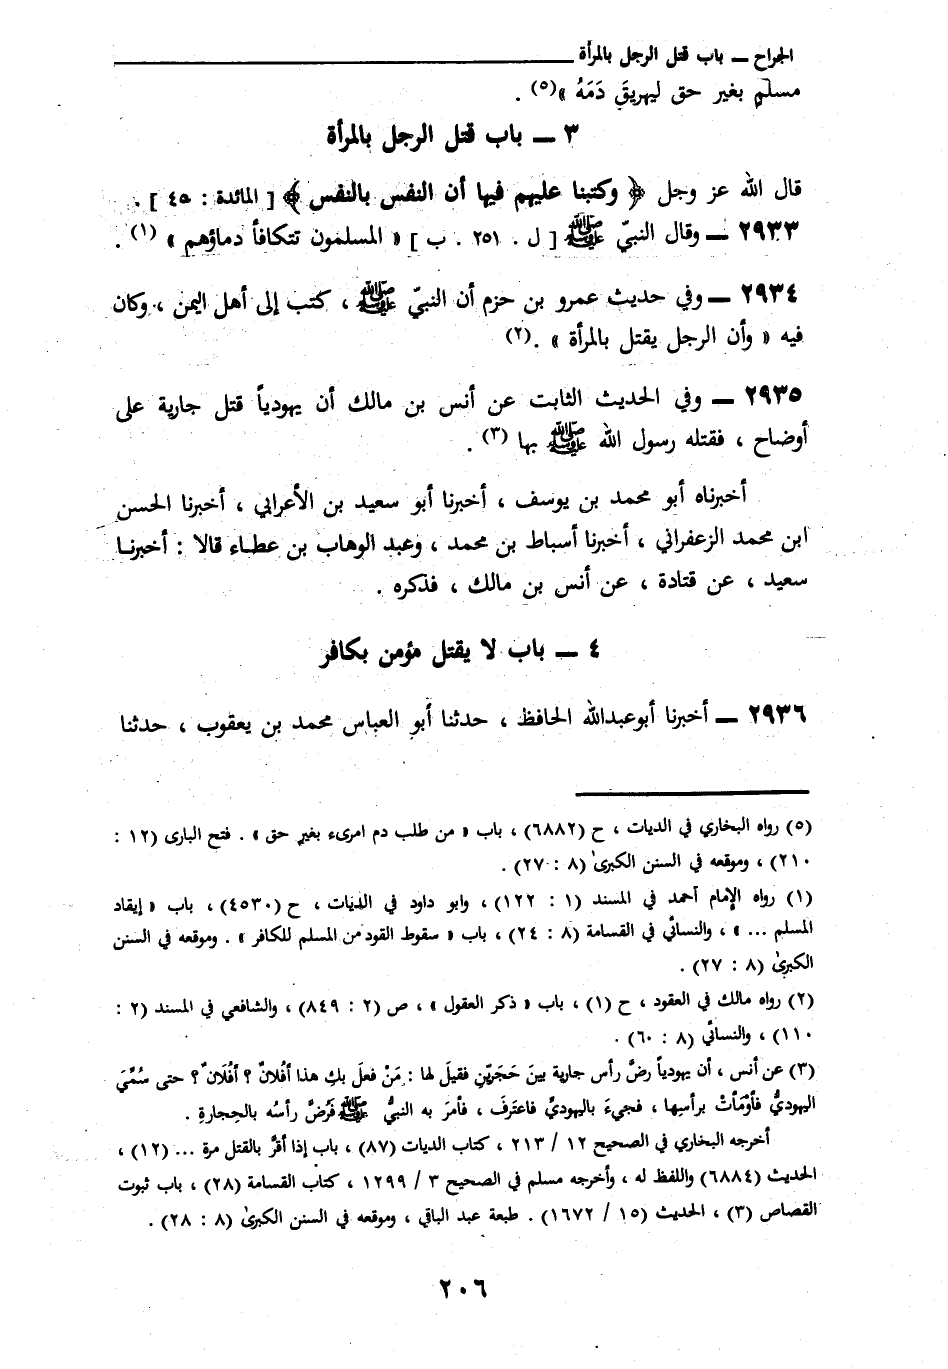 الجراح ــ باب قتل الرجل بالمرأة
مسلمٍ بغير حق ليهريقَ دَمَهُ »(٥) .
٣ ــ باب قتل الرجل بالمرأة
قال الله عز وجل ﴿ وكتبنا عليهم فيها أن النفس بالنفس ﴾ [ المائدة : ٤٥ ] .
٢٩٣٣ ــ وقال النبيّ ﷺ [ ل . ٢٥١ . ب ] « المسلمون تتكافأ دماؤهم » (١) .
٢٩٣٤ ــ وفي حديث عمرو بن حزم أن النبيّ ﷺ ، كتب إلى أهل اليمن ، وكان
فيه « وأن الرجل يقتل بالمرأة » .(٢)
٢٩٣٥ ــ وفي الحديث الثابت عن أنس بن مالك أن يهودياً قتل جارية على
أوضاح ، فقتله رسول الله ﷺ بها (٣) .
أخبرناه أبو محمد بن يوسف ، أخبرنا أبو سعيد بن الأعرابي ، أخبرنا الحسن
ابن محمد الزعفراني ، أخبرنا أسباط بن محمد ، وعبد الوهاب بن عطاء قالا : أخبرنا
سعيد ، عن قتادة ، عن أنس بن مالك ، فذكره .
٤ ــ باب لا يقتل مؤمن بكافر
٢٩٣٦ ــ أخبرنا أبوعبدالله الحافظ ، حدثنا أبو العباس محمد بن يعقوب ، حدثنا
(٥) رواه البخاري في الديات ، ح (٦٨٨٢) ، باب « من طلب دم امرىء بغير حق » . فتح البارى (١٢ :
٢١٠) ، وموقعه في السنن الكبرىٰ (٨ : ٢٧) .
(١) رواه الإمام أحمد في المسند (١ : ١٢٢) ، وابو داود في الديات ، ح (٤٥٣٠) ، باب « إيقاد
المسلم ... » ، والنسائي في القسامة (٨ : ٢٤) ، باب « سقوط القود من المسلم للكافر » . وموقعه في السنن
الكبرىٰ (٨ : ٢٧) .
(٢) رواه مالك في العقود ، ح (١) ، باب « ذكر العقول » ، ص (٢ : ٨٤٩) ، والشافعي في المسند (٢ :
١١٠) ، والنسائي (٨ : ٦٠) .
(٣) عن أنس ، أن يهودياً رضَّ رأس جارية بينَ حَجَرَيّنِ فقيلَ لها : مَنْ فعلَ بكِ هذا أفُلانٌ ؟ أفُلَانٌ ؟ حتى سُمِّيَ
اليهوديُّ فأوْمَأتْ برأسِها ، فجيءَ باليهوديِّ فاعترَفَ ، فأمرَ به النبيُّ ﷺ فَرُضَّ رأسُه بالحِجارةِ .
أخرجه البخاري في الصحيح ١٢ / ٢١٣ ، كتاب الديات (٨٧) ، باب إذا أقرَّ بالقتل مرة ... (١٢) ،
الحديث (٦٨٨٤) واللفظ له ، وأخرجه مسلم في الصحيح ٣ / ١٢٩٩ ، كتاب القسامة (٢٨) ، باب ثبوت
القصاص (٣) ، الحديث (١٥ / ١٦٧٢) . طبعة عبد الباقي ، وموقعه في السنن الكبرىٰ (٨ : ٢٨) .
٢٠٦